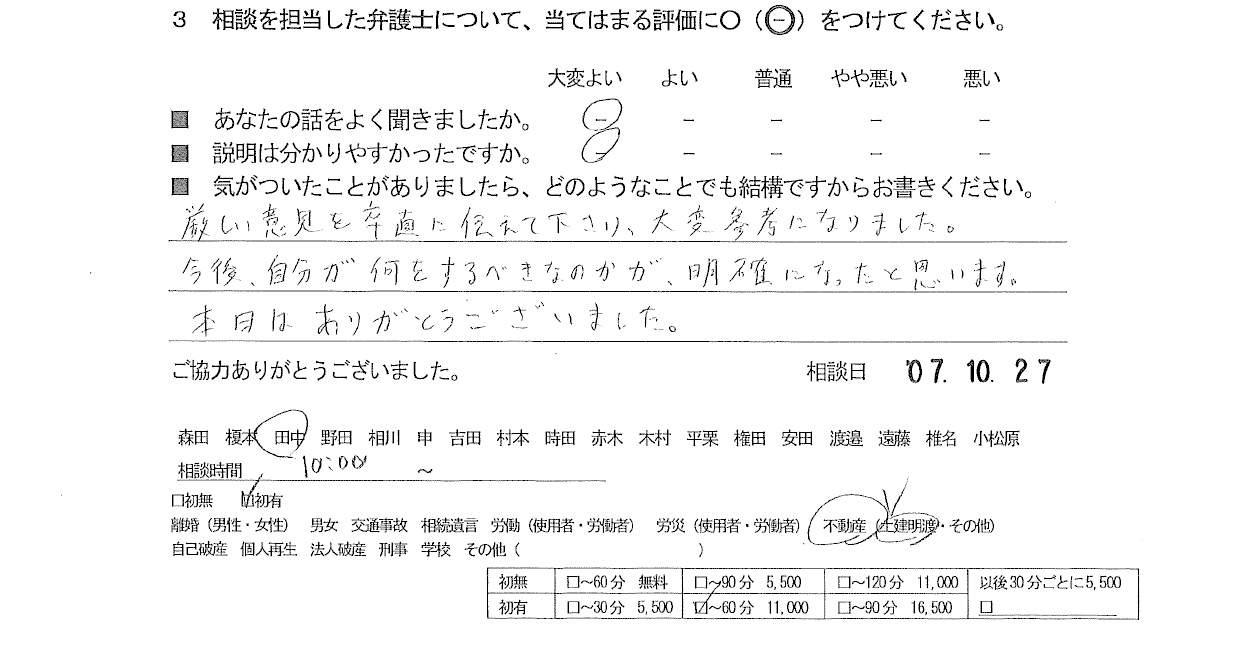 3 相談を担当した弁護士について、当てはまる評価に〇（㊀）をつけてください。
大変よい よい 普通 やや悪い 悪い
■ あなたの話をよく聞きましたか。 － － － － －
■ 説明は分かりやすかったですか。 － － － － －
■ 気がついたことがありましたら、どのようなことでも結構ですからお書きください。
厳しい意見を率直に伝えて下さり、大変参考になりました。
今後、自分が何をするべきなのかが、明確になったと思います。
本日はありがとうございました。
ご協力ありがとうございました。 相談日 '07.10.27
森田 榎本 田中 野田 相川 申 吉田 村本 時田 赤木 木村 平栗 権田 安田 渡邉 遠藤 椎名 小松原
相談時間 10:00 ～
□初無 ☑初有
離婚（男性・女性） 男女 交通事故 相続遺言 労働（使用者・労働者） 労災（使用者・労働者） 不動産（土建明渡・その他）
自己破産 個人再生 法人破産 刑事 学校 その他（ ）
初無 □～60分 無料 □～90分 5,500 □～120分 11,000 以後30分ごとに5,500
初有 □～30分 5,500 ☑～60分 11,000 □～90分 16,500 □